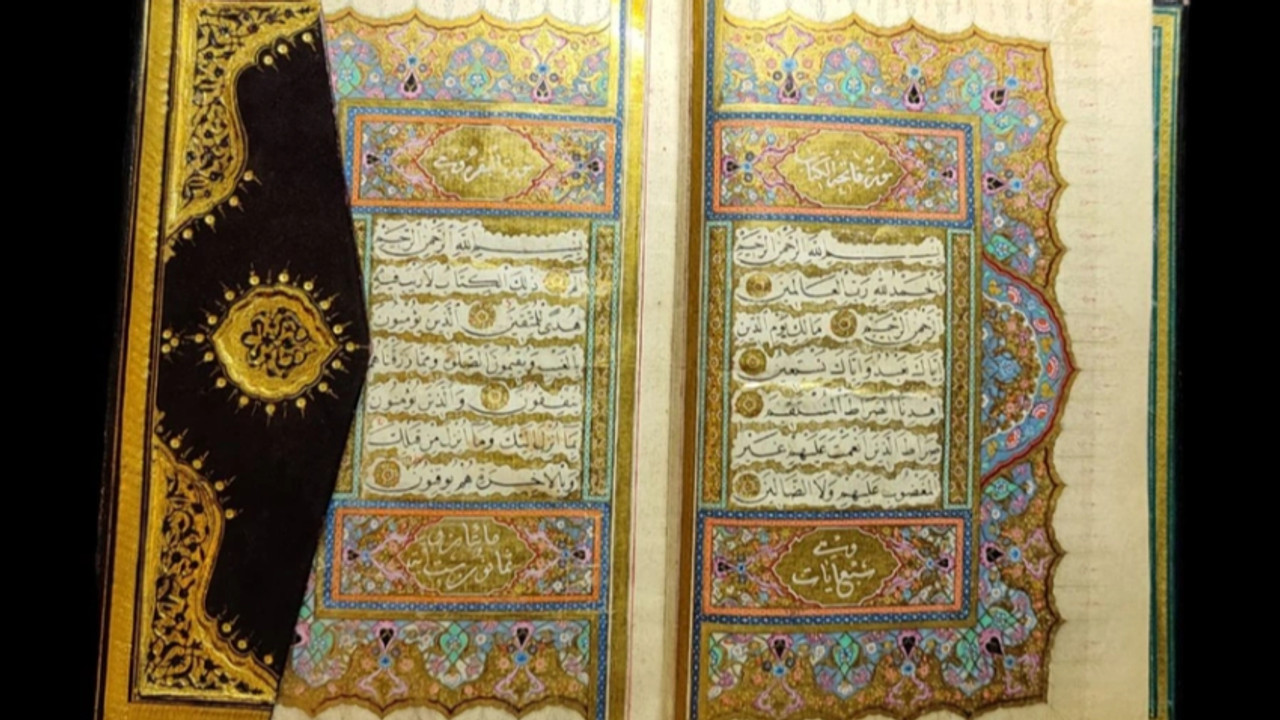 سورة فاتحة الكتاب
بسم الله الرحمن الرحيم
الحمد لله رب العالمين
الرحمن الرحيم مالك يوم الدين
اياك نعبد واياك نستعين
اهدنا الصراط المستقيم
صراط الذين انعمت عليهم غير
المغضوب عليهم ولا الضالين
وهي
سبع ايات
سورة البقرة وهي
بسم الله الرحمن الرحيم
الم ذلك الكتاب لا ريب فيه
هدى للمتقين الذين يؤمنون
بالغيب ويقيمون الصلوة ومما رزقناهم
ينفقون والذين يؤمنون
بما انزل اليك وما انزل من قبلك
وبالاخرة هم يوقنون